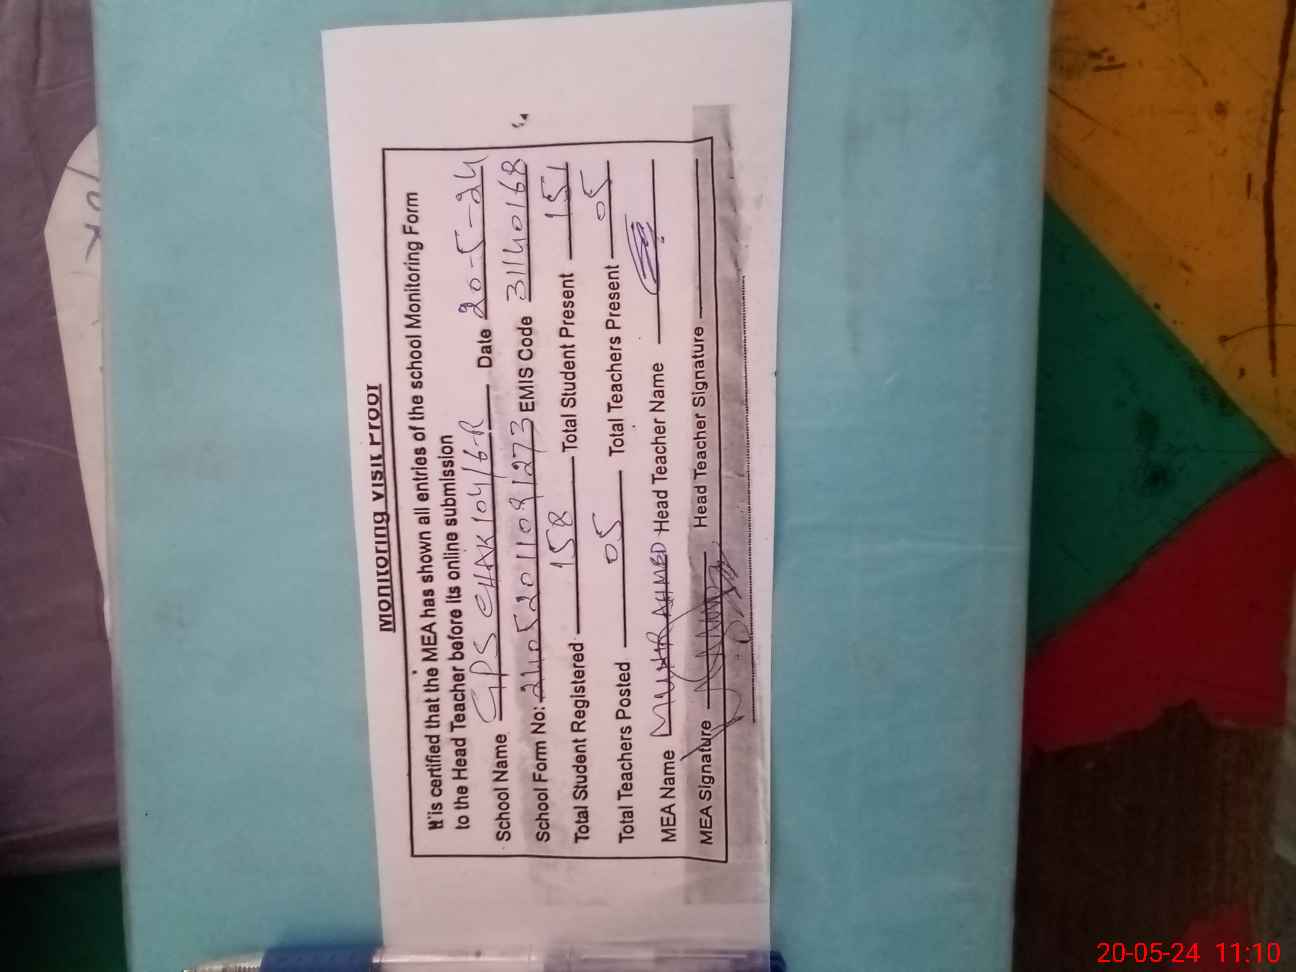 Monitoring Visit Proof
It is certified that the MEA has shown all entries of the school Monitoring Form
to the Head Teacher before its online submission
School Name GPS CHAK 104/6-R Date 20-5-24
School Form No: 24052011091273 EMIS Code 31140168
Total Student Registered 158 Total Student Present 151
Total Teachers Posted 05 Total Teachers Present 05
MEA Name AHMED Head Teacher Name
MEA Signature Head Teacher Signature
20-05-24 11:10